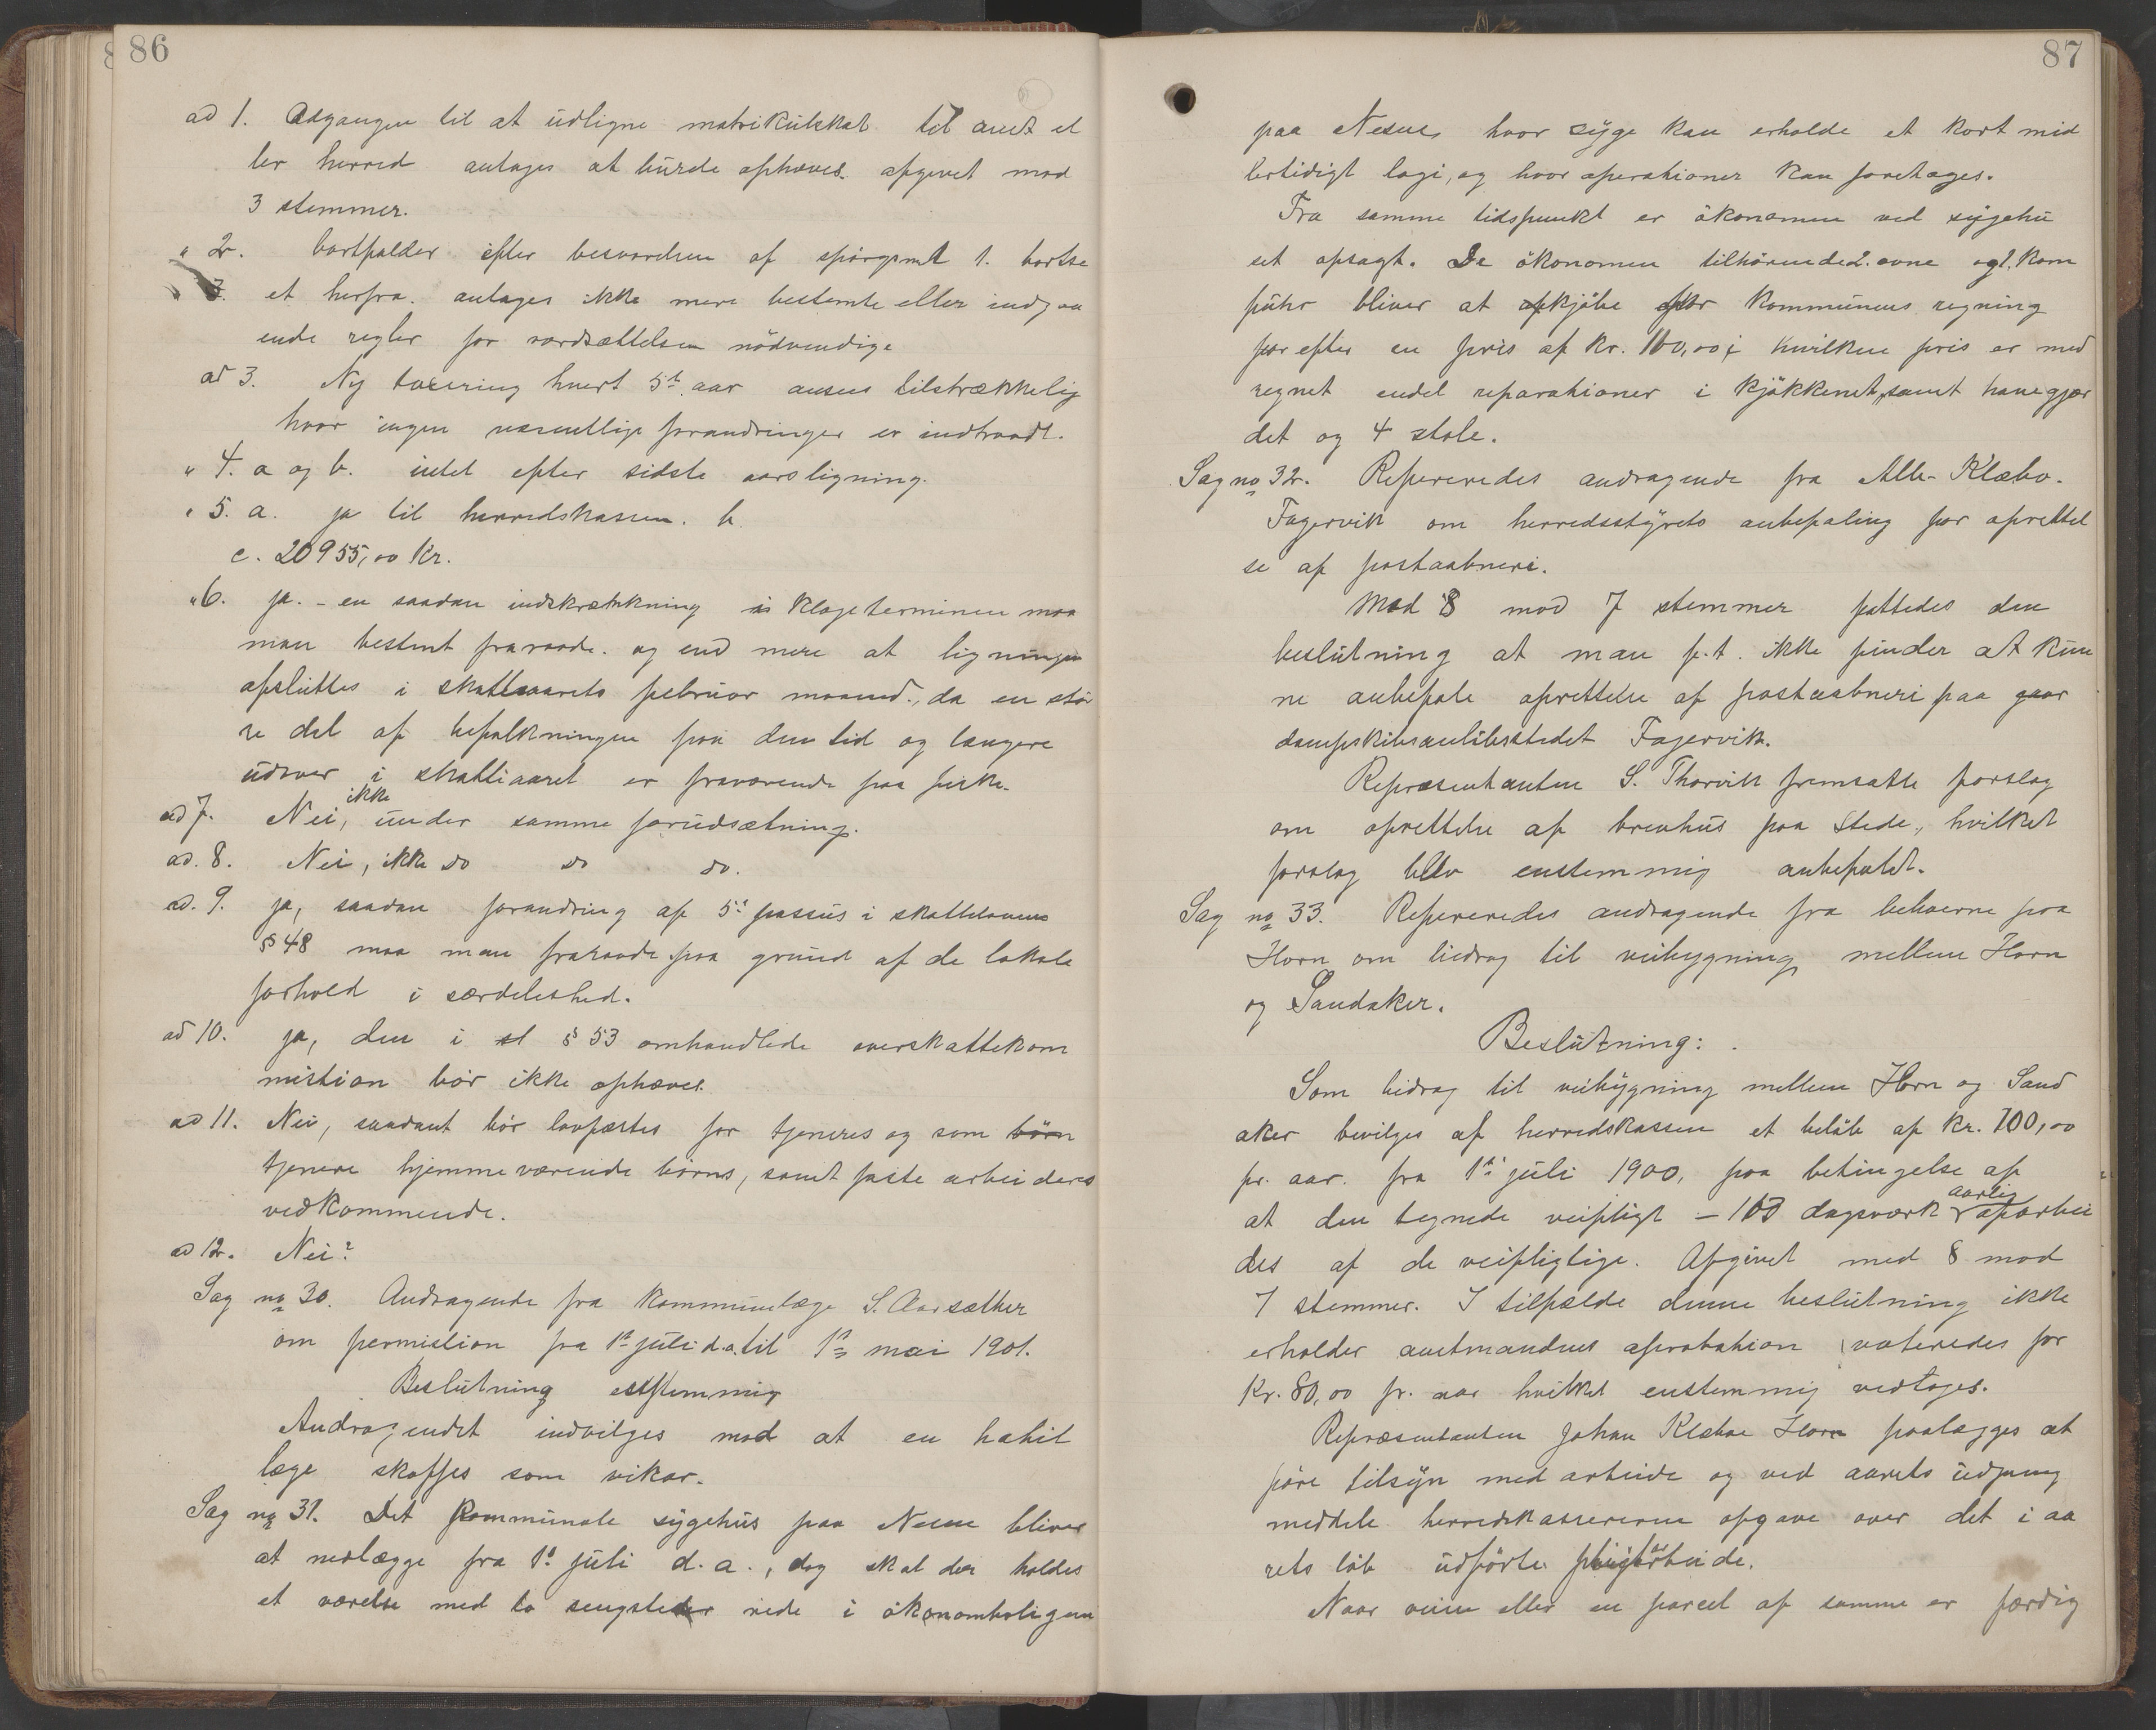 86
ad 1. Adgangen til at üdligne matrikülskat til amt el
ler herred antages at bürde ophæves. afgivet mod
3 stemmer.
" 2. bortfalder efter besvarelsen af spörgsmål 1. bortse
" 3. et herfra. antages ikke mere bestemte eller indgaa
ende regler for værdsættelsen nödvendige
ad 3. Ny taxering hvert 5te aar ansees tilstrækkelig
hvor ingen væsentlige forandringer er indtraadt.
" 4. a og b. intet efter sidste aars ligning.
" 5. a. ja til herredskassen. b.
c. 20955,00 kr.
" 6. ja. - en saadan indskrænkning i klageterminen maa
man bestemt fraraade. og end mere at ligningen
afslüttes i skatteaarets februar maaned., da en stör
re del af befolkningen paa den tid og længere
üdover i skatteaaret er fraværende paa fiske.
ad 7. Nei, ikke ünder samme forüdsætning.
ad. 8. Nei, ikke do do do.
ad. 9. ja, saadan forandring af 5te passüs i skattelovens
§ 48 maa man fraraade paa gründ af de lokale
forhold i særdeleshed.
ad 10. ja, den i sl § 53 omhandlede overskattekom
mistion bör ikke ophæves.
ad 11. Nei, saadant bör lovfæstes for tjeneres og som börn
tjenere hjemmeværende börns, samt faste arbeideres
vedkommende.
ad 12. Nei?
Sag no 30. Andragende fra kommünelæge S. Aarsæther
om permistion fra 1ste jüli d.a. til 1ste mai 1901.
Beslütning enstemmig
Andragendet indvilges mod at en habil
læge skaffes som vikar.
Sag no 31. Det kommünale sygehüs paa Nesne bliver
at nedlægge fra 1ste jüli d. a., dog skal der holdes
et værelse med to sengsteder rede i ökonomboligen
87
paa Nesne, hvor syge kan erholde et kort mid
lertidigt logi, og hvor operationer kan foretages.
Fra samme tidspunkt er ökonomen ved sygehü
set opsagt. De ökonomen tilhörende 2. ovne og 1. kom
führ bliver at afkjöbe for kommünens regning
for efter en pris af kr. 100,00, i hvilken pris er med
regnet endel reparationer i kjökkenet, samt havegjær
det og 4 stole.
Sag no 32. Refereredes andragende fra Alb. Klæbo.
Fagervik om herredsstyrets anbefaling for oprettel
se af postaabneri.
Mod 8 mod 7 stemmer fattedes den
beslütning at man p.t. ikke finder at kün
ne anbefale oprettelse af postaabneri paa gaar
dampskibsanlöbsstedet Fagervik.
Repræsentanten S. Thorvik fremsatte forslag
om oprettelse af brevhüs paa Stede, hvilket
forslag blev enstemmig anbefaldt.
Sag no 33. Refereredes andragende fra beboerne paa
Horn om bidrag til veibygning mellem Horn
og Sandaker.
Beslütning:
Som bidrag til veibygning mellem Horn og Sand
aker bevilges af herredskassen et belöb af kr. 100,00
pr. aar. fra 1ste jüli 1900, paa betingelse af
at den tegnede veipligt – 100 dagsværk aarlig oparbei
des af de veipligtige. Afgivet med 8 mod
7 stemmer. I tilfælde denne beslütning ikke
erholder amtmandens aprobation voteredes for
kr. 80,00 pr. aar hvilket enstemmig vedtoges.
Repræsentanten Johan Klæboe Horn paalægges at
före tilsyn med arbeide og ved aarets üdgang
meddele herredskassereren opgave over det i aa
rets löb üdförte pligtarbeide.
Naar veien eller en parcel af samme er færdig